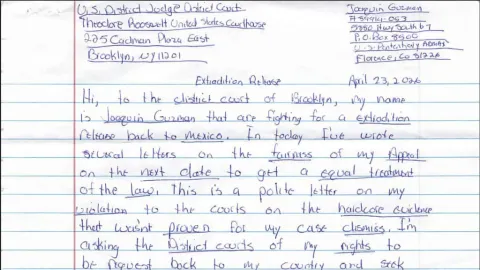 U.S. District Judge District Court
Theodore Roosevelt United States Courthouse
225 Cadman Plaza East
Brooklyn, NY 11201
Joaquin Guzman
5880 Hwy South 67
P.O. Box 8500
U.S. Penitentiary
Florence, Co 81226
Extradition Release
April 23, 2026
Hi, to the district court of Brooklyn, my name
is Joaquin Guzman that are fighting for a extradition
release back to mexico. In today I've wrote
several letters on the fairness of my Appeal
on the next date to get a equal treatment
of the law. This is a polite letter on my
violation to the courts on the hardcore evidence
that wasn't proven for my case dismiss. I'm
asking the District courts of my rights to
be request back to my country and seek